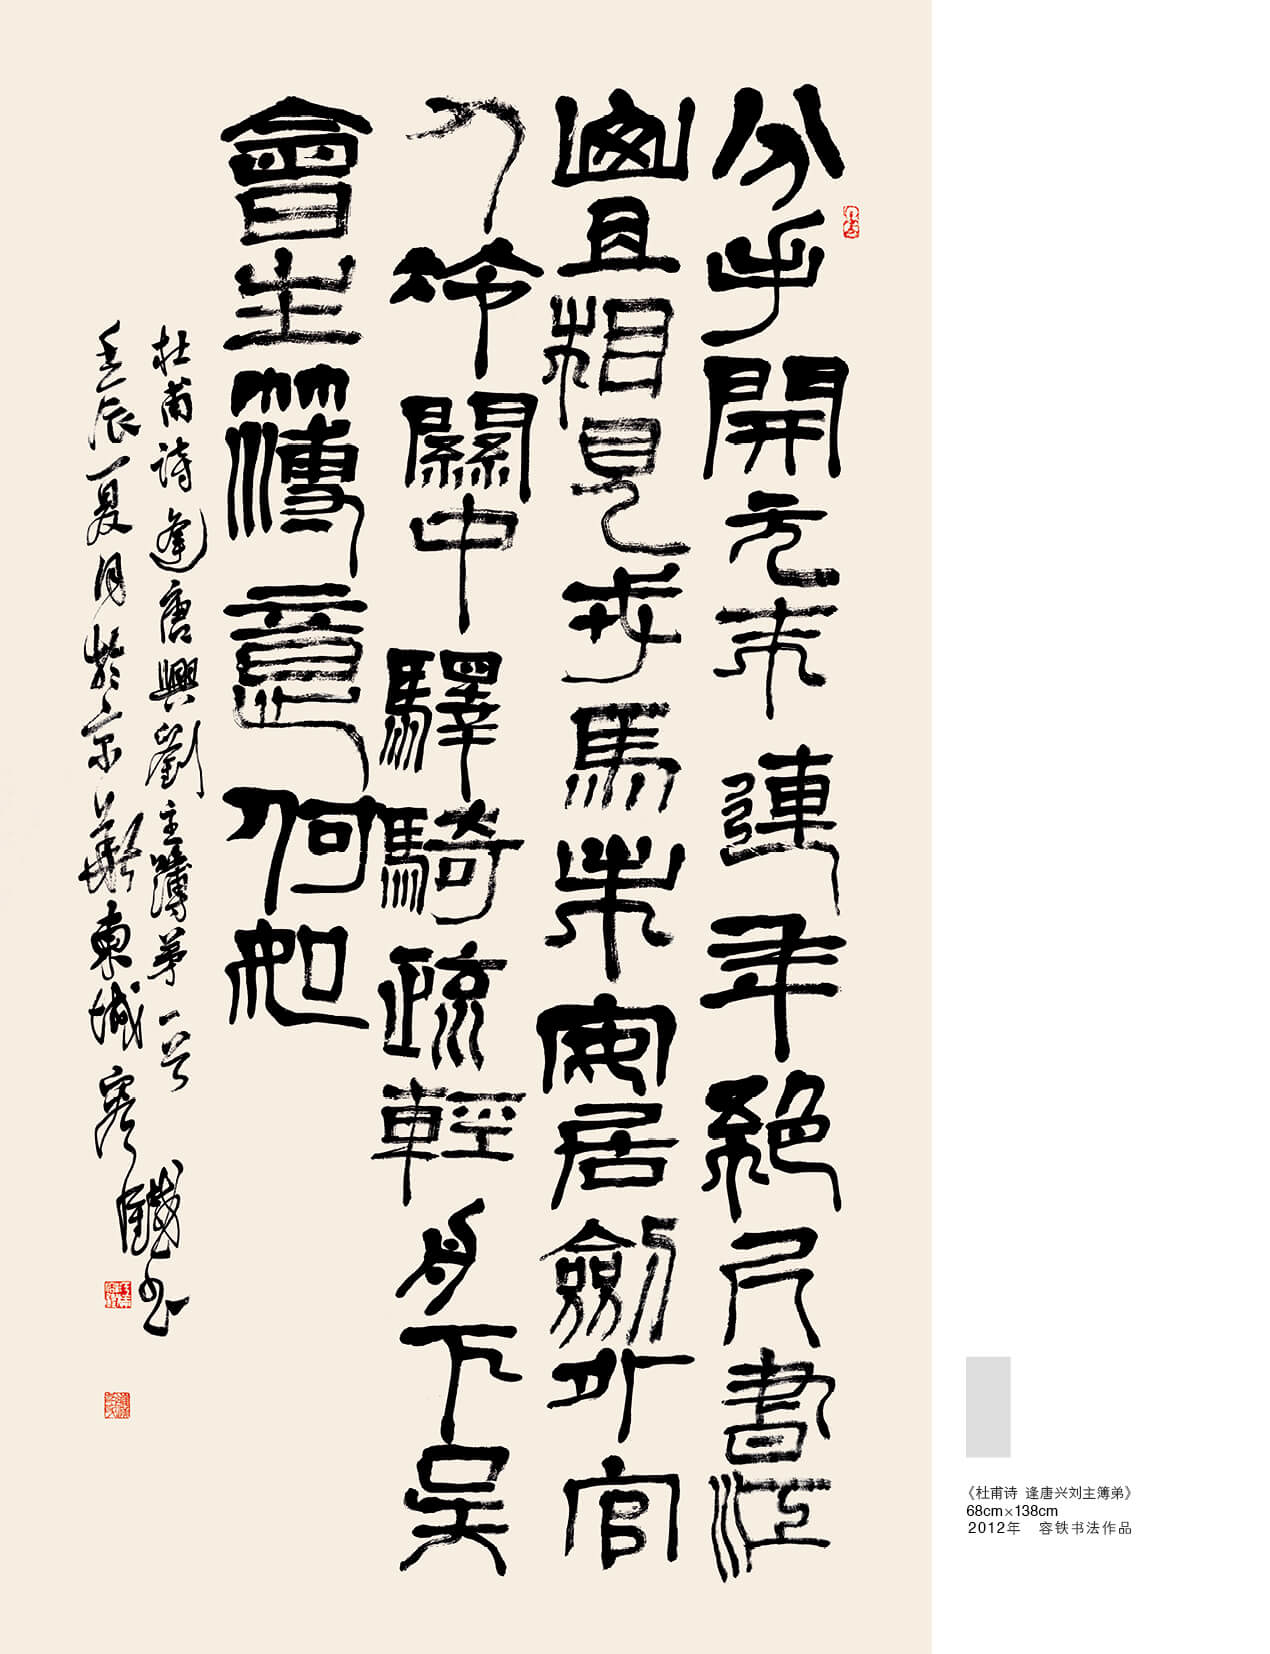 分手開元末連年絕尺書江
山且相見戎馬未安居劍外官
人冷關中驛騎疏輕舟下吳
會主簿意何如
杜甫詩逢唐興劉主簿弟一首
壬辰夏月於京華東城容鐵書
《杜甫诗 逢唐兴刘主簿弟》
68cm×138cm
2012年 容铁书法作品